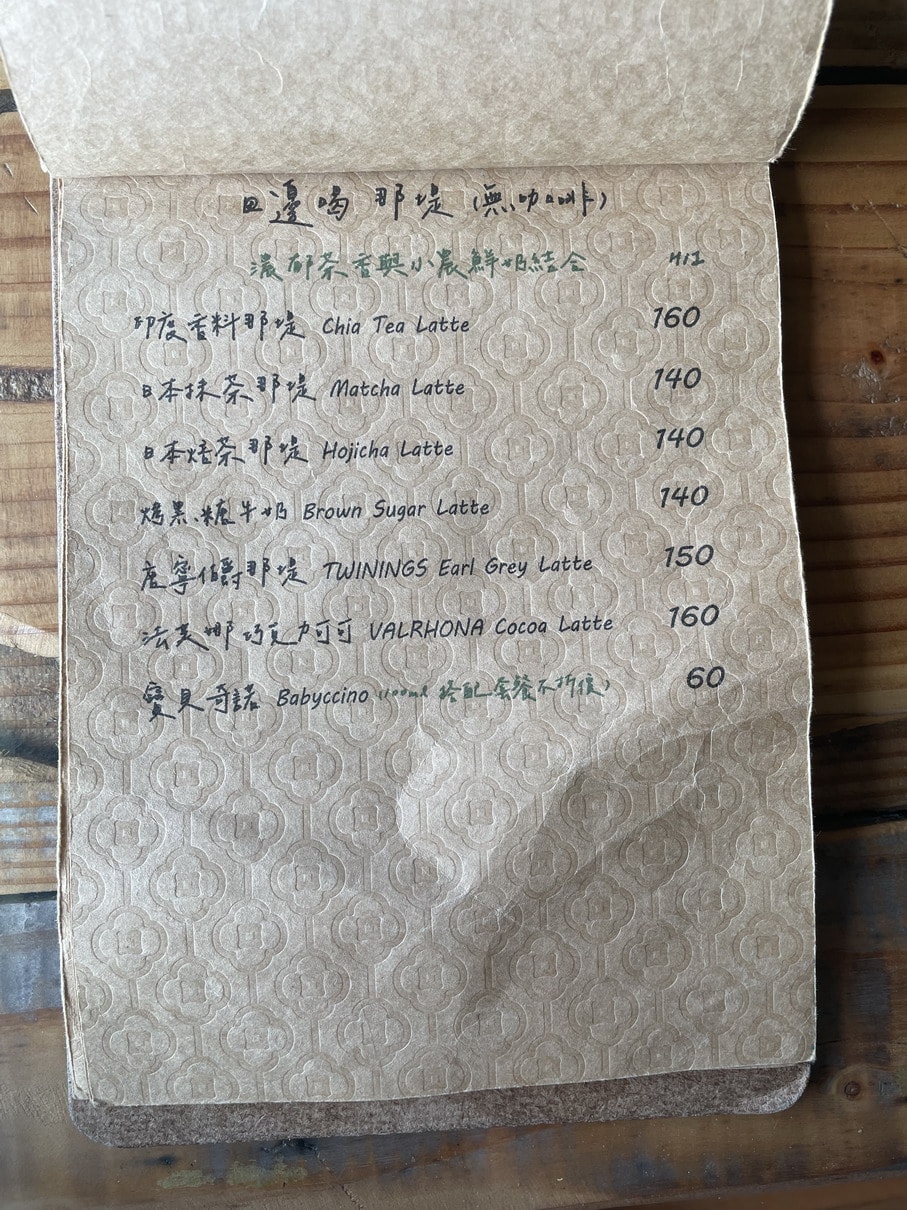 邊喝 那堤 (無咖啡)
濃郁茶香與小農鮮奶結合 H/I
印度香料那堤 Chia Tea Latte 160
日本抹茶那堤 Matcha Latte 140
日本焙茶那堤 Hojicha Latte 140
烤黑糖牛奶 Brown Sugar Latte 140
唐寧伯爵那堤 TWININGS Earl Grey Latte 150
法芙娜巧克力可可 VALRHONA Cocoa Latte 160
寶貝奇諾 Babyccino (100ml 搭配套餐不折價) 60